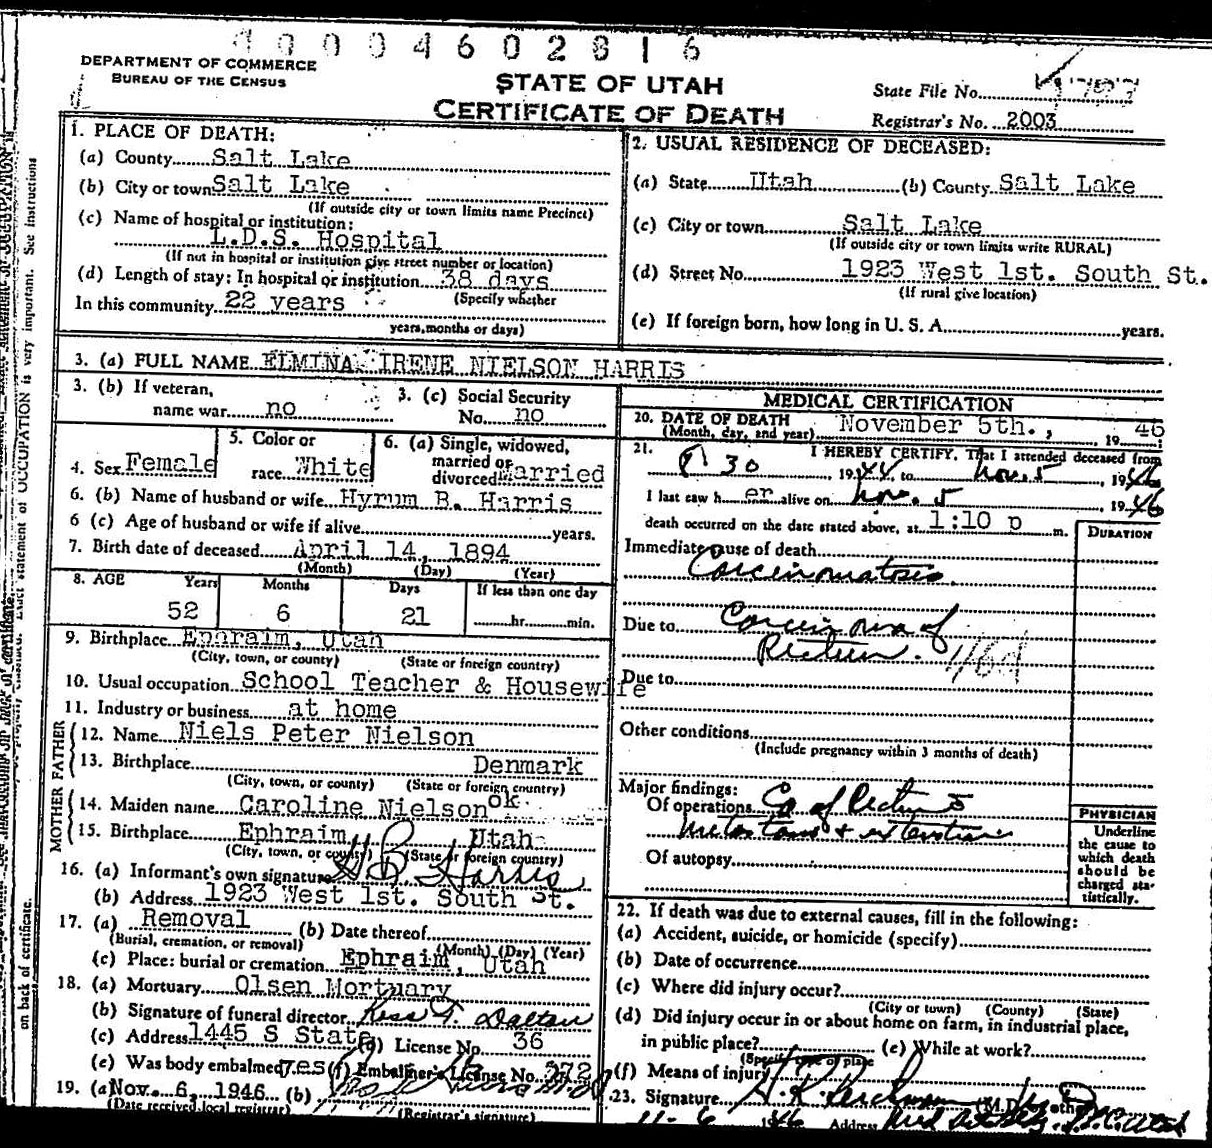 4 0 0 0 4 6 0 2 8 1 6
DEPARTMENT OF COMMERCE
BUREAU OF THE CENSUS
STATE OF UTAH
CERTIFICATE OF DEATH
State File No.
Registrar's No. 2003
1. PLACE OF DEATH:
(a) County Salt Lake
(b) City or town Salt Lake
(If outside city or town limits name Precinct)
(c) Name of hospital or institution:
L.D.S. Hospital
(If not in hospital or institution give street number or location)
(d) Length of stay: In hospital or institution 38 days
(Specify whether
In this community 22 years
years, months or days)
2. USUAL RESIDENCE OF DECEASED:
(a) State Utah (b) County Salt Lake
(c) City or town Salt Lake
(If outside city or town limits write RURAL)
(d) Street No. 1923 West 1st. South St.
(If rural give location)
(e) If foreign born, how long in U. S. A. years.
3. (a) FULL NAME ELMINA IRENE NIELSON HARRIS
3. (b) If veteran,
name war no
3. (c) Social Security
No. no
4. Sex Female
5. Color or
race White
6. (a) Single, widowed,
married or
divorced Married
6. (b) Name of husband or wife Hyrum B. Harris
6 (c) Age of husband or wife if alive years.
7. Birth date of deceased April 14, 1894
(Month) (Day) (Year)
8. AGE Years Months Days If less than one day
52 6 21 hr. min.
9. Birthplace Ephraim, Utah
(City, town, or county) (State or foreign country)
10. Usual occupation School Teacher & Housewife
11. Industry or business at home
FATHER
12. Name Niels Peter Nielson
13. Birthplace Denmark
(City, town, or county) (State or foreign country)
MOTHER
14. Maiden name Caroline Nielson ok.
15. Birthplace Ephraim Utah
(City, town, or county) (State or foreign country)
16. (a) Informant's own signature H B Harris
(b) Address 1923 West 1st. South St.
17. (a) Removal (b) Date thereof
(Burial, cremation, or removal) (Month) (Day) (Year)
(c) Place: burial or cremation Ephraim, Utah
18. (a) Mortuary Olsen Mortuary
(b) Signature of funeral director Ross T. Dalton
(c) Address 1445 S State (d) License No. 36
(e) Was body embalmed? yes (f) Embalmer's License No. 372
19. (a) Nov. 6, 1946 (b)
(Date received local registrar) (Registrar's signature)
MEDICAL CERTIFICATION
20. DATE OF DEATH November 5th., 1946
(Month, day, and year)
21. I HEREBY CERTIFY, That I attended deceased from
30, 1944, to Nov. 5, 1946
I last saw her alive on Nov. 5, 1946
death occurred on the date stated above, at 1:10 p m.
DURATION
Immediate cause of death
Carcinomatosis.
Due to Carcinoma of
Rectum.
Due to
Other conditions
(Include pregnancy within 3 months of death)
Major findings:
Of operations Ca of Rectum
metastasis + extension
Of autopsy
PHYSICIAN
Underline
the cause to
which death
should be
charged sta-
tistically.
22. If death was due to external causes, fill in the following:
(a) Accident, suicide, or homicide (specify)
(b) Date of occurrence
(c) Where did injury occur?
(City or town) (County) (State)
(d) Did injury occur in or about home on farm, in industrial place,
in public place? (e) While at work?
(Specify type of place
(f) Means of injury
23. Signature (M.D. or other)
11-6 1946 Address
See instructions
on back of certificate.